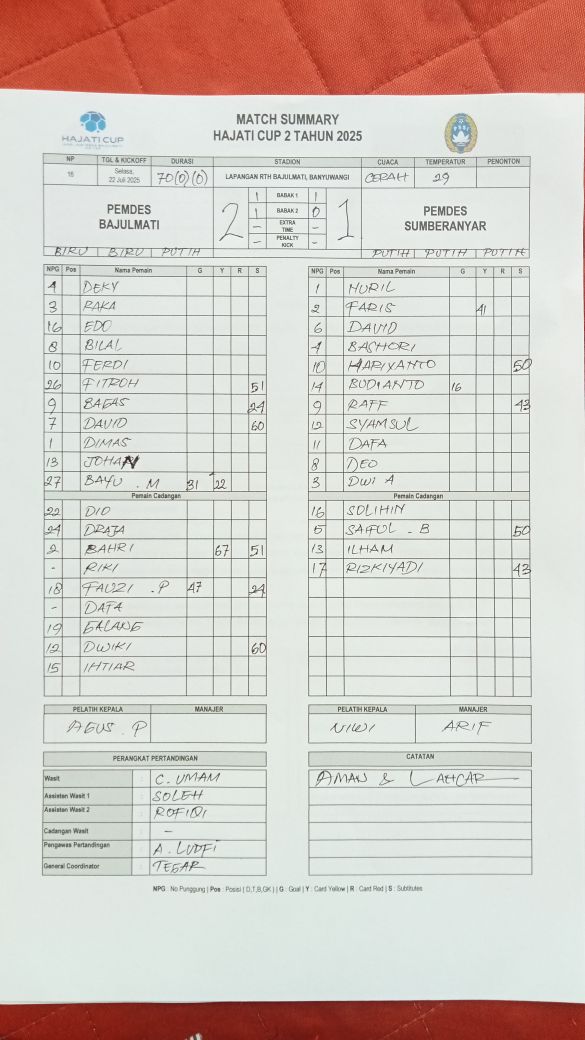 HAJATI CUP
MATCH SUMMARY
HAJATI CUP 2 TAHUN 2025
NP TGL & KICKOFF DURASI STADION CUACA TEMPERATUR PENONTON
Selasa, 22 Juli 2025 70(0)(0) LAPANGAN RTH BAJULMATI, BANYUWANGI CERAH 29
PEMDES BAJULMATI 2 1 PEMDES SUMBERANYAR
1 BABAK 1 1
1 BABAK 2 0
- EXTRA TIME -
- PENALTY KICK -
BIRU BIRU PUTIH
PUTIH PUTIH PUTIH
NPG Pos Nama Pemain G Y R S
DEKY
3 RAKA
16 EDO
8 BILAL
10 FERDI
26 FITROH 51
9 BAGAS 24
7 DAVID 60
1 DIMAS
13 JOHAN
27 BAYU . M 31 22
Pemain Cadangan
22 DIO
24 DRAJA
2 BAHRI 67 51
- RIKI
18 FAUZI . P 47 24
- DAFA
19 GALANG
12 DWIKI 60
15 IHTIAR
PELATIH KEPALA MANAJER
AGUS . P
NPG Pos Nama Pemain G Y R S
1 NURIL
2 FARIS 41
6 DAVID
BASHORI
10 HARIYANTO 50
14 BUDIANTO 16
9 RAFF 43
12 SYAMSUL
11 DAFA
8 DEO
3 DWI A
Pemain Cadangan
16 SOLIHIN
5 SAIFUL - B 50
13 ILHAM
17 RIZKIYADI 43
PELATIH KEPALA MANAJER
NIWI ARIF
PERANGKAT PERTANDINGAN
Wasit : C. UMAM
Assisten Wasit 1 : SOLEH
Assisten Wasit 2 : ROFIQI
Cadangan Wasit : -
Pengawas Pertandingan : A. LUDFI
General Coordinator : TEGAR
CATATAN
AMAN & LANCAR
NPG : No Punggung | Pos : Posisi [ D,T,B,GK ] | G : Goal | Y : Card Yellow | R : Card Red | S : Subtitutes